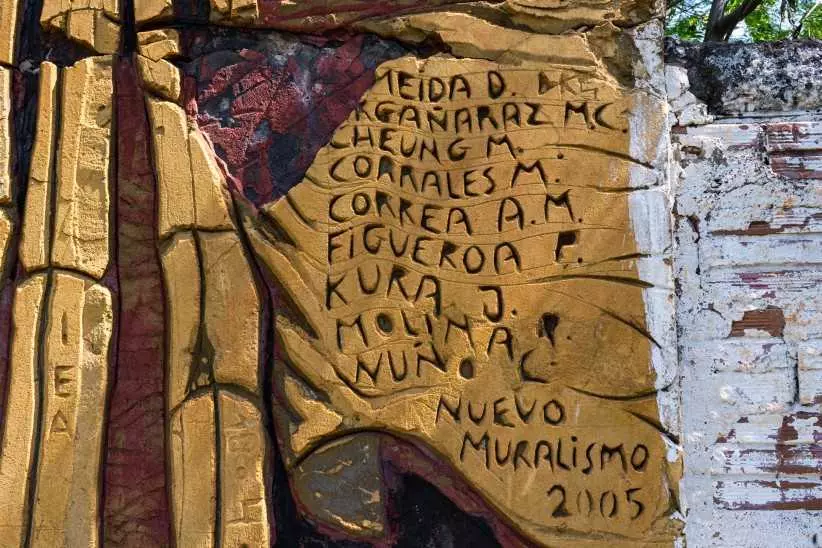 MEIDA D.
RGAÑARAZ M.C.
CHEUNG M.
CORRALES M.
CORREA A.M.
FIGUEROA F.
KURA J.
MOLINA P.
NUÑO C.
NUEVO
MURALISMO
2005
IEA